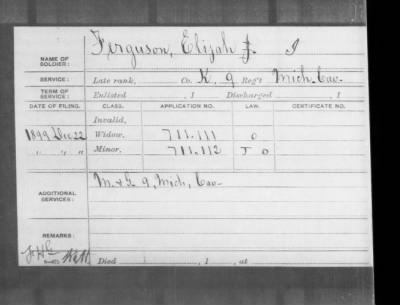 Ferguson, Elijah J.
NAME OF SOLDIER:
SERVICE: Late rank, Co. K, 9 Reg't Mich. Cav.
TERM OF SERVICE: Enlisted , 1 Discharged , 1
DATE OF FILING. CLASS. APPLICATION NO. LAW. CERTIFICATE NO.
Invalid,
1899 Dec 22 Widow, 711.111 O
" " " Minor, 711.112 J O
ADDITIONAL SERVICES: M & G 9, Mich, Cav.
REMARKS:
Died , 1 , at